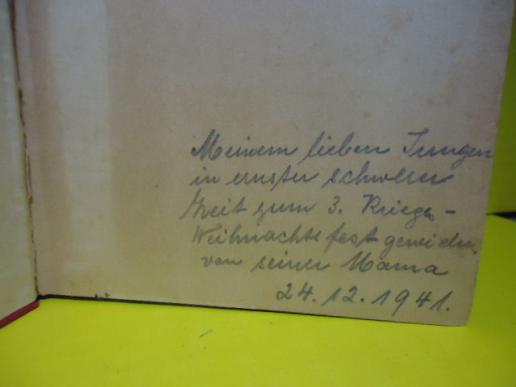 Meinem lieben Jungen
in ernster schwerer
Zeit zum 3. Kriegs-
Weihnachtsfest gewidm.
von seiner Mama
24.12.1941.